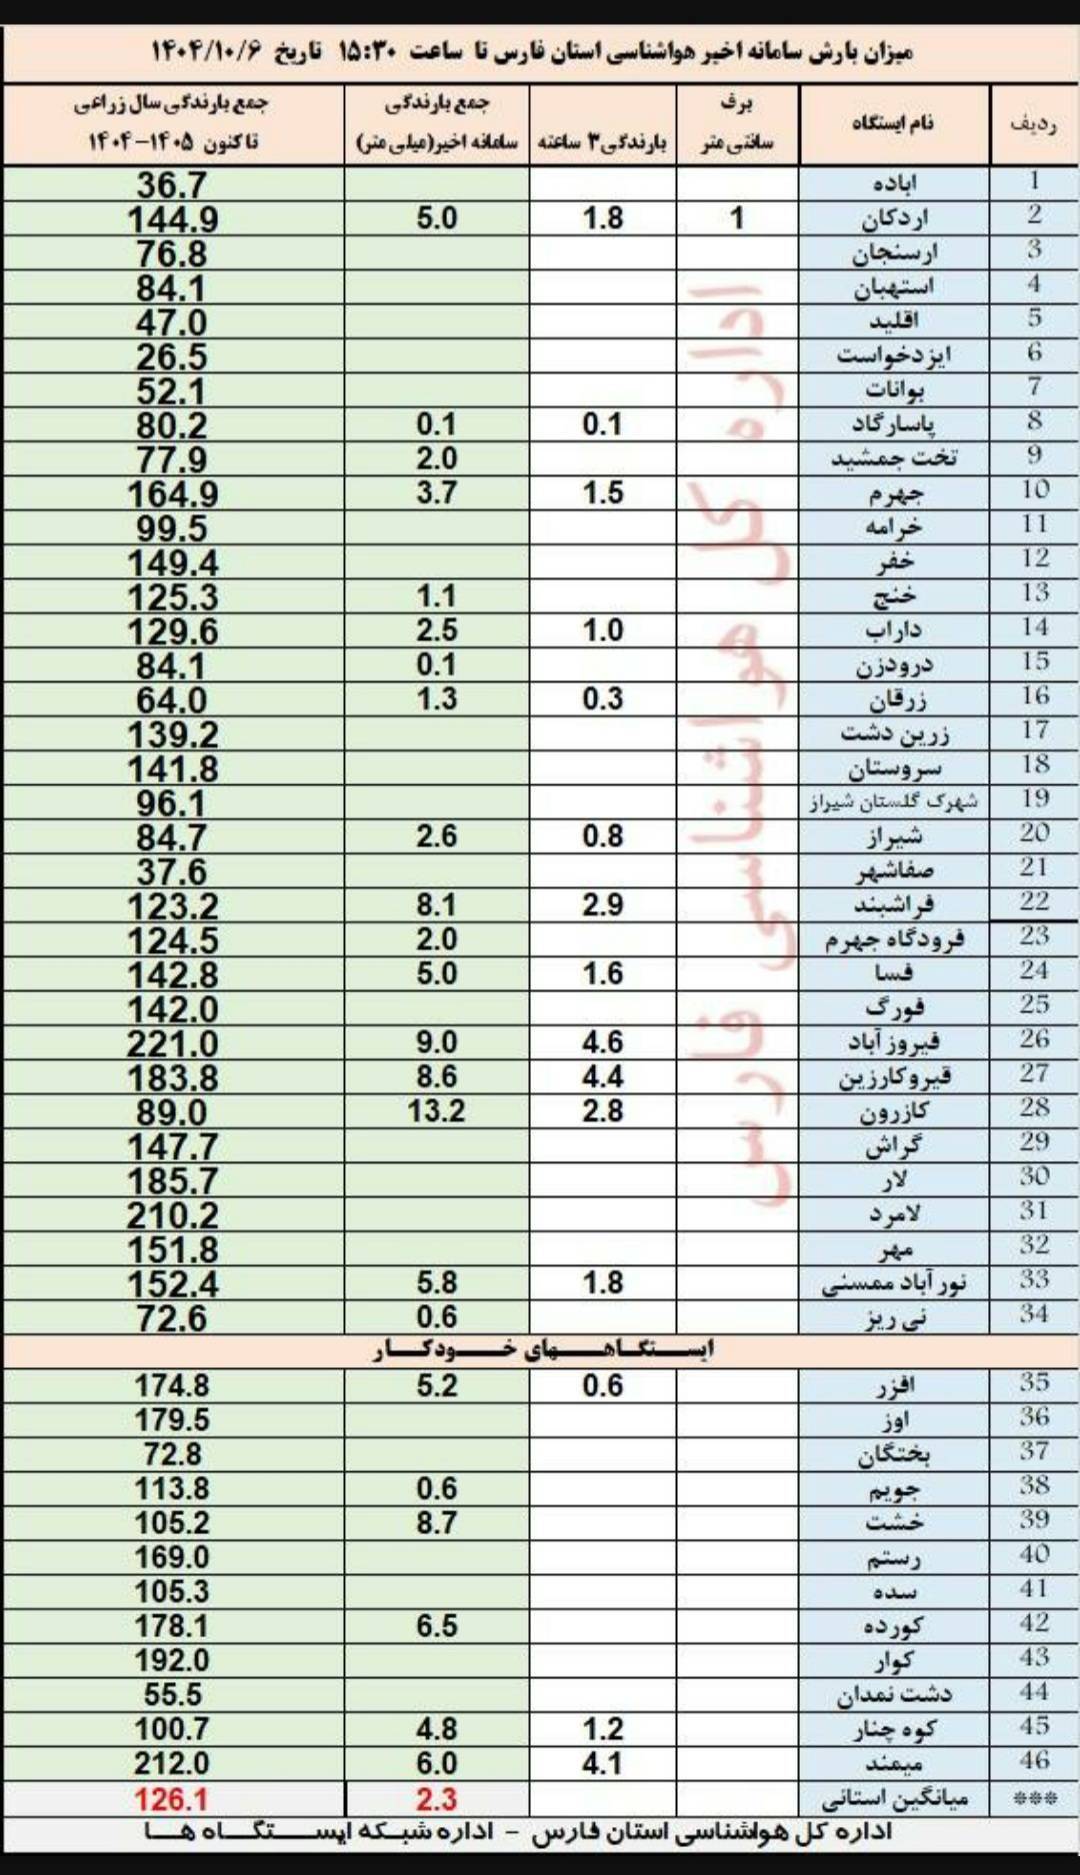 میزان بارش سامانه اخیر هواشناسی استان فارس تا ساعت ۱۵:۳۰ تاریخ ۱۴۰۴/۱۰/۶
ردیف نام ایستگاه برف سانتی متر بارندگی۳ ساعته جمع بارندگی سامانه اخیر(میلی متر) جمع بارندگی سال زراعی تاکنون ۱۴۰۵-۱۴۰۴
1 اباده 36.7
2 اردکان 1 1.8 5.0 144.9
3 ارسنجان 76.8
4 استهبان 84.1
5 اقلید 47.0
6 ایزدخواست 26.5
7 بوانات 52.1
8 پاسارگاد 0.1 0.1 80.2
9 تخت جمشید 2.0 77.9
10 جهرم 1.5 3.7 164.9
11 خرامه 99.5
12 خفر 149.4
13 خنج 1.1 125.3
14 داراب 1.0 2.5 129.6
15 درودزن 0.1 84.1
16 زرقان 0.3 1.3 64.0
17 زرین دشت 139.2
18 سروستان 141.8
19 شهرک گلستان شیراز 96.1
20 شیراز 0.8 2.6 84.7
21 صفاشهر 37.6
22 فراشبند 2.9 8.1 123.2
23 فرودگاه جهرم 2.0 124.5
24 فسا 1.6 5.0 142.8
25 فورگ 142.0
26 فیروز آباد 4.6 9.0 221.0
27 قیروکارزین 4.4 8.6 183.8
28 کازرون 2.8 13.2 89.0
29 گراش 147.7
30 لار 185.7
31 لامرد 210.2
32 مهر 151.8
33 نور آباد ممسنی 1.8 5.8 152.4
34 نی ریز 0.6 72.6
ایستگاههای خودکار
35 افزر 0.6 5.2 174.8
36 اوز 179.5
37 بختگان 72.8
38 جویم 0.6 113.8
39 خشت 8.7 105.2
40 رستم 169.0
41 سده 105.3
42 کورده 6.5 178.1
43 کوار 192.0
44 دشت نمدان 55.5
45 کوه چنار 1.2 4.8 100.7
46 میمند 4.1 6.0 212.0
*** میانگین استانی 2.3 126.1
اداره کل هواشناسی استان فارس - اداره شبکه ایستگاه ها
اداره کل هواشناسی فارس